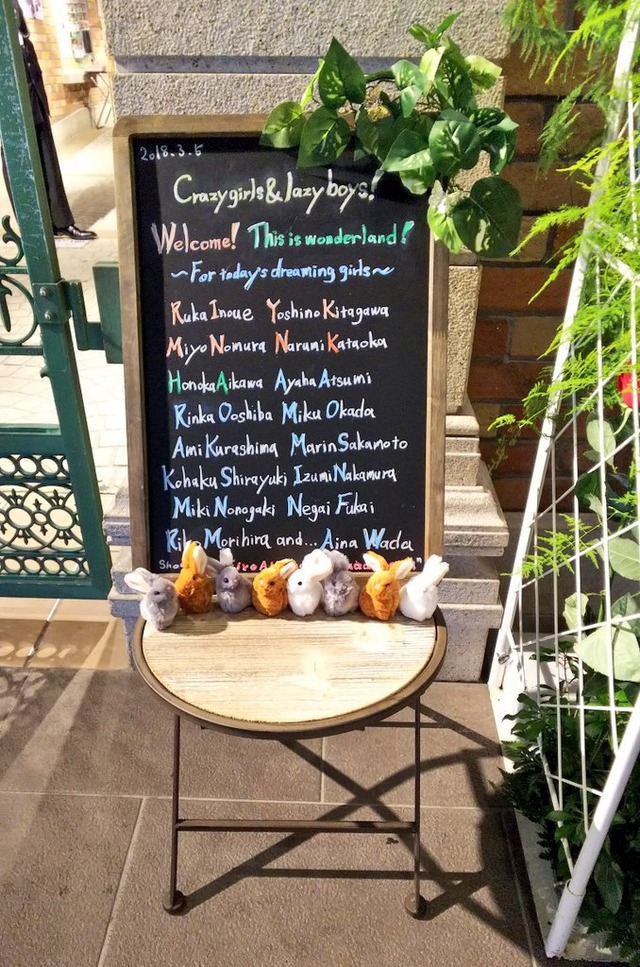 2018.3.5
Crazy girls & lazy boys!
Welcome! This is wonderland!
~For today's dreaming girls~
Ruka Inoue Yoshino Kitagawa
Miyo Nomura Narumi Kataoka
Honoka Aikawa Ayaha Atsumi
Rinka Ooshiba Miku Okada
Ami Kurashima Marin Sakamoto
Kohaku Shirayuki Izumi Nakamura
Miki Nonogaki Negai Fukai
Morihira and... Aina Wada